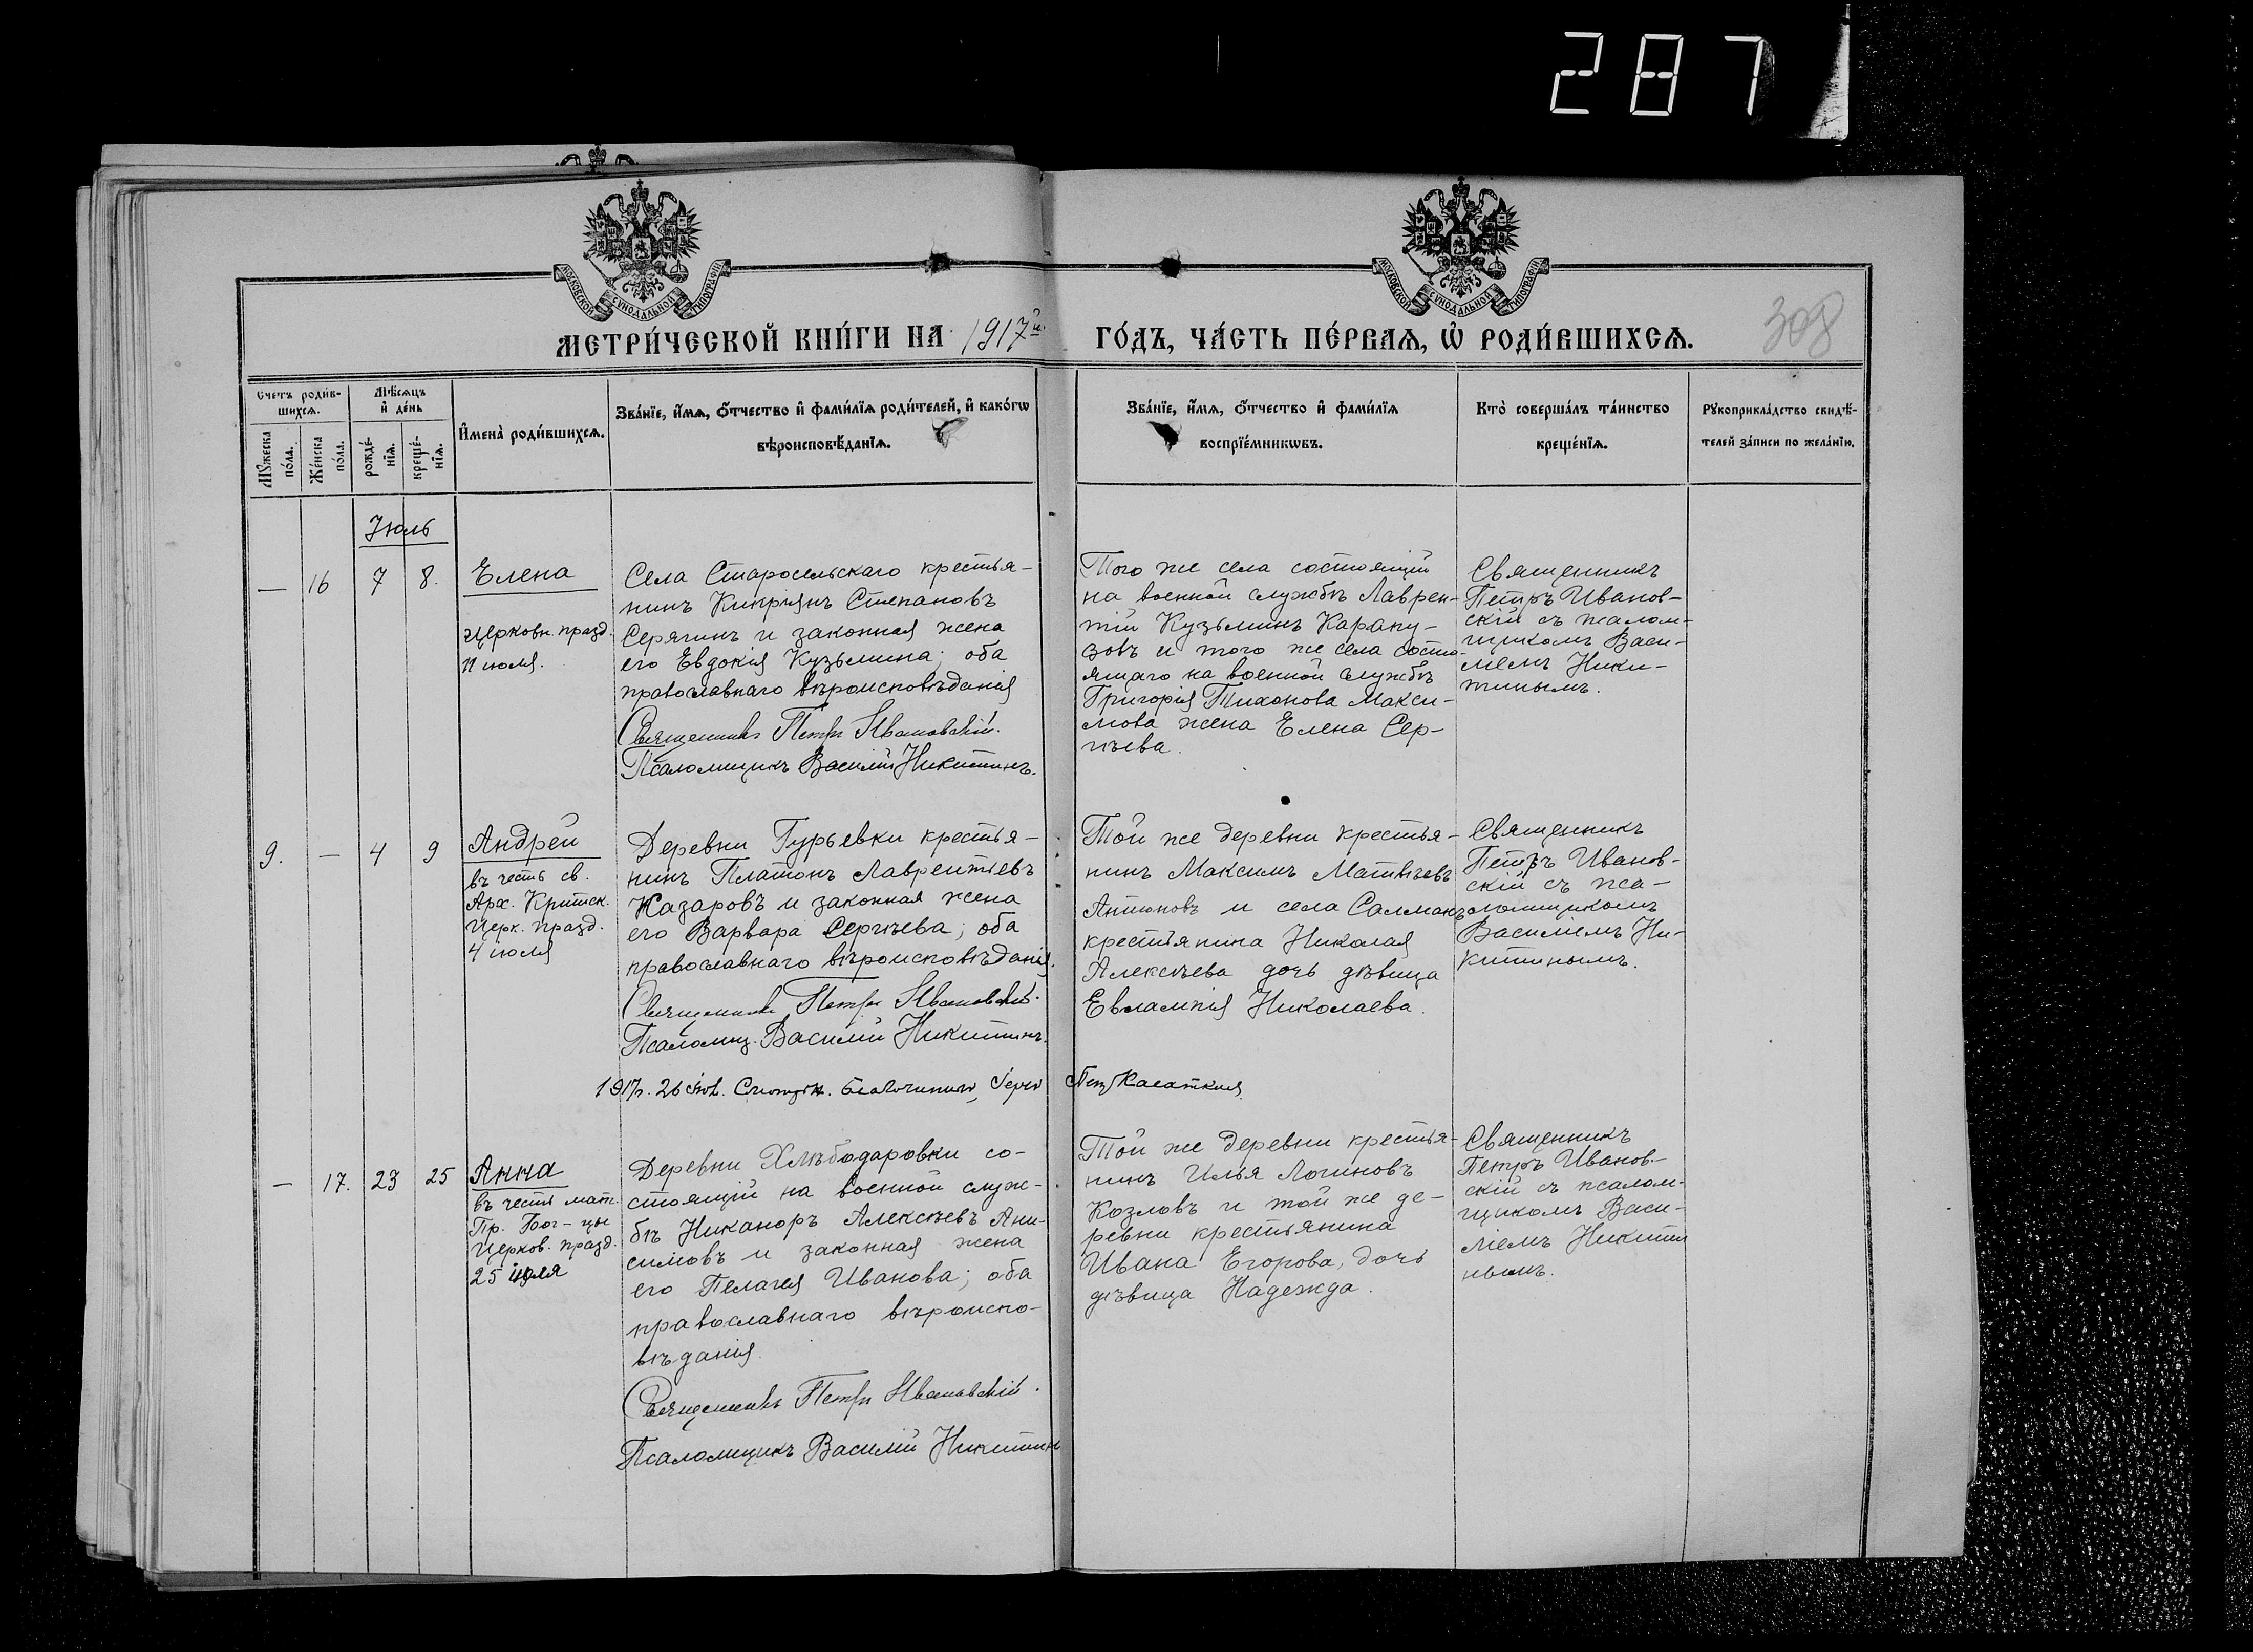 287
МОСКОВСКОЙ СѴНОДАЛЬНОЙ ТИПОГРАФІИ
МОСКОВСКОЙ СѴНОДАЛЬНОЙ ТИПОГРАФІИ
МЕТРИ́ЧЕСКОЙ КНИ́ГИ НА 1917й ГО́ДЪ, ЧА́СТЬ ПЕ́РВАѦ, Ѡ РОДИ́ВШИХСѦ.
308
Счетъ роди́в-
шихсѧ.
Мѣ́сѧцъ
и҆ де́нь
Мꙋ́жеска
по́ла.
Же́нска
по́ла.
рожде́-
нїѧ.
креще́-
нїѧ.
И҆мена̀ роди́вшихсѧ.
Зва́нїе, и҆́мѧ, ѻ҆́тчество и҆ фами́лїѧ роди́телей, и҆ како́гѡ
вѣроисповѣ́данїѧ.
Зва́нїе, и҆́мѧ, ѻ҆́тчество и҆ фами́лїѧ
воспрїе́мникѡвъ.
Кто̀ соверша́лъ та́инство
креще́нїѧ.
Рꙋкоприкла́дство свидѣ́-
телей за́писи по жела́нїю.
Іюль
— 16 7 8.
Елена
Церковн. празд.
11 іюля.
Села Старосельскаго крестья-
нинъ Кипріянъ Степановъ
Серягинъ и законная жена
его Евдокія Кузьмина; оба
православнаго вѣроисповѣданія
Священникъ Петръ Ивановскій.
Псаломщикъ Василій Никитинъ.
Того же села состоящій
на военной службѣ Лаврен-
тій Кузьминъ Карапу-
зовъ и того же села состо-
ящаго на военной службѣ
Григорія Тихонова Макси-
мова жена Елена Сер-
гѣева.
Священникъ
Петръ Иванов-
скій съ псалом-
щикомъ Васи-
ліемъ Ники-
тинымъ.
9. — 4 9
Андрей
въ честь св.
Арх. Критск.
Церк. празд.
4 іюля
Деревни Гурьевки крестья-
нинъ Платонъ Лаврентіевъ
Назаровъ и законная жена
его Варвара Сергѣева; оба
православнаго вѣроисповѣданія.
Священникъ Петръ Ивановскій.
Псаломщ. Василій Никитинъ.
Той же деревни крестья-
нинъ Максимъ Матвѣевъ
Антоновъ и села Салмановъ
крестьянина Николая
Алексѣева дочь дѣвица
Евлампія Николаева.
Священникъ
Петръ Иванов-
скій съ пса-
ломщикомъ
Василіемъ Ни-
китинымъ.
1917г. 26 Смотрѣлъ. Благочинный, Петр Касаткинъ
— 17. 23 25
Анна
въ честь мат.
Пр. Бог-цы
Церков. празд.
25 іюля
Деревни Хлѣбодаровки со-
стоящій на военной служ-
бѣ Никаноръ Алексѣевъ Ани-
симовъ и законная жена
его Пелагея Иванова; оба
православнаго вѣроиспо-
вѣданія.
Священникъ Петръ Ивановскій.
Псаломщикъ Василій Никитинъ
Той же деревни крестья-
нинъ Илья Логиновъ
Козловъ и той же де-
ревни крестьянина
Ивана Егорова, дочь
дѣвица Надежда.
Священникъ
Петръ Иванов-
скій съ псалом-
щикомъ Васи-
ліемъ Никити
нымъ.